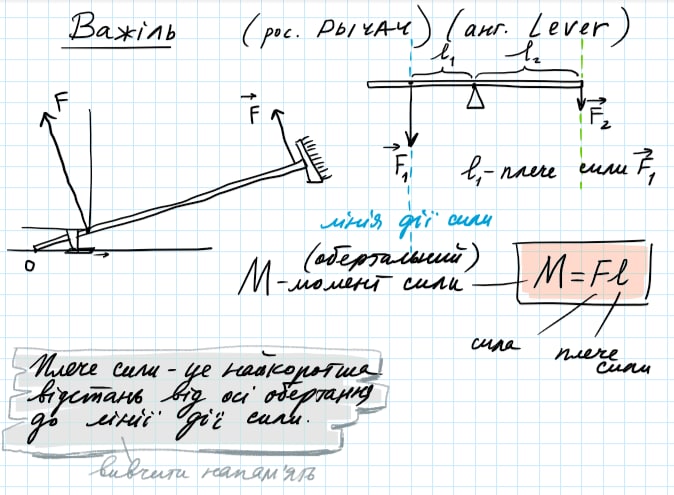 Важіль (рос. РЫЧАГ) (анг. Lever)
l₁ l₂
F
F
F₁
F₂
l₁ - плече сили F₁
лінія дії сили
(обертальний)
M - момент сили
M = Fl
сила
плече сили
O
Плече сили - це найкоротша
відстань від осі обертання
до лінії дії сили.
вивчити напам'ять